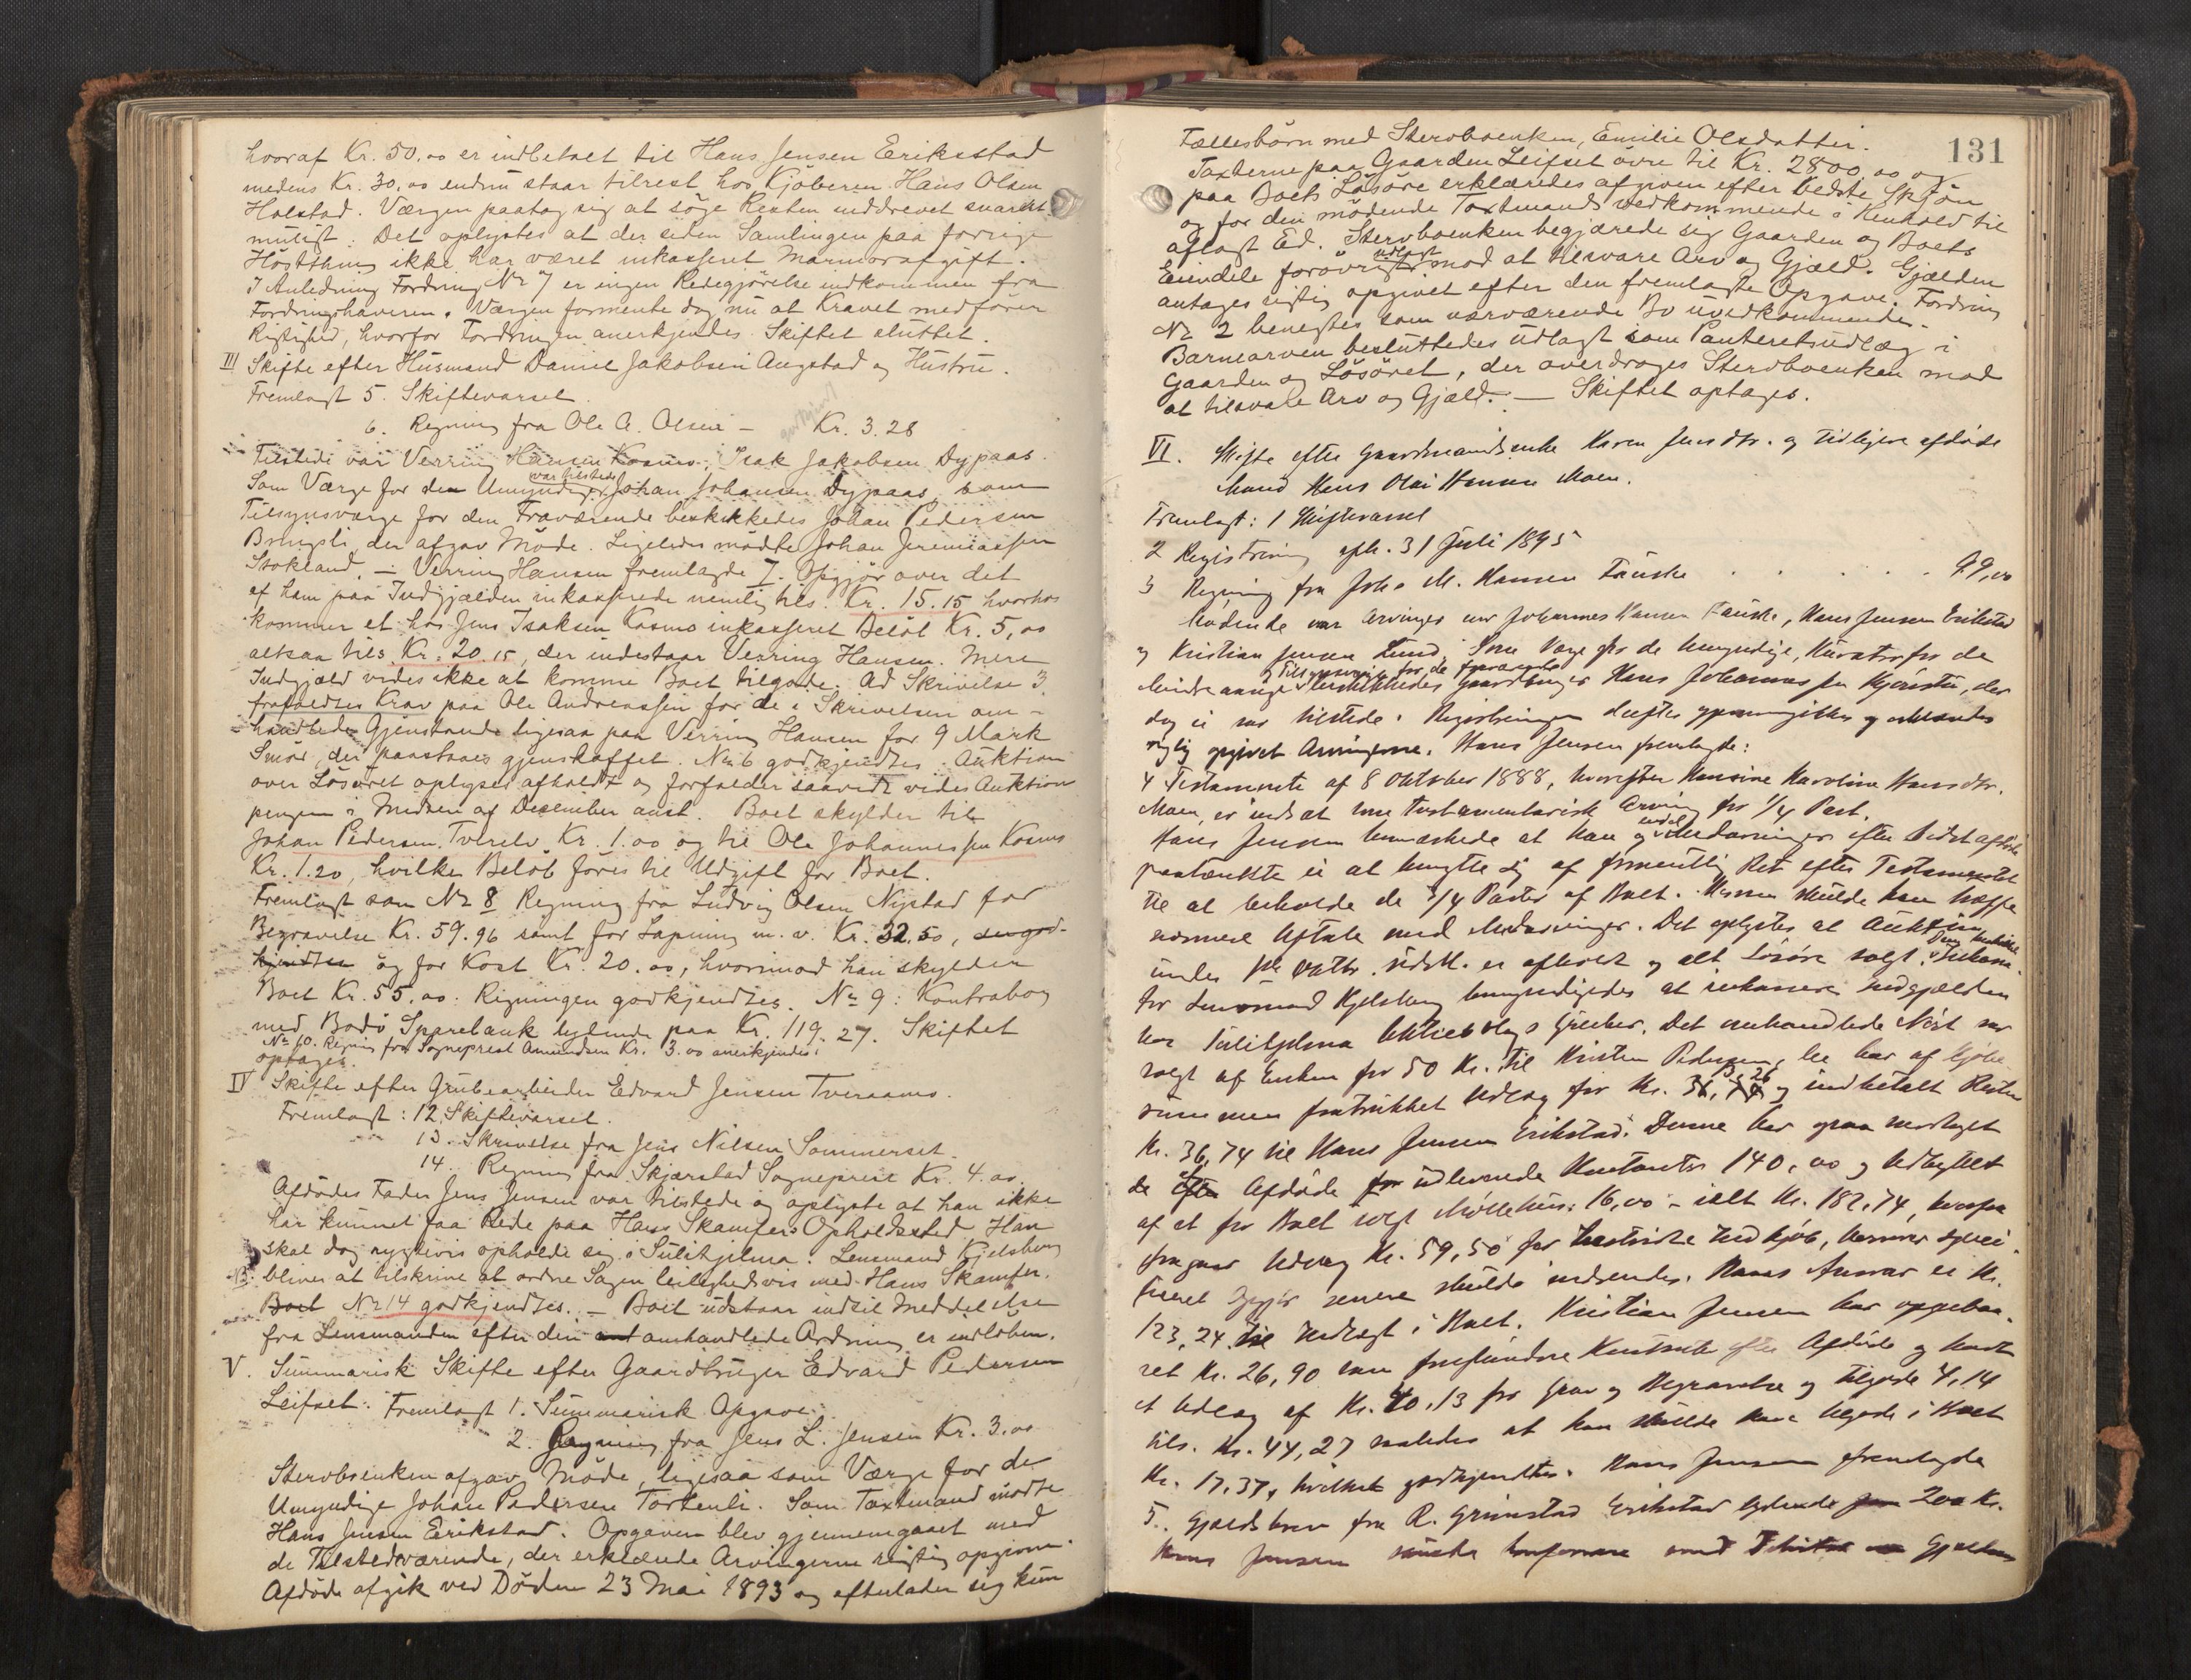 hvoraf Kr. 50.00 er indbetalt til Hans Jensen Erikstad
medens Kr. 30.00 endnu staar tilrest hos Kjøberen Hans Olsen
Halstad. Værgen paatog sig at søge Resten inddrevet snarest
muligt. Det oplystes at der siden Samlingen paa forrige
Høstthing ikke har været inkasseret Marmorafgift.
I Anledning Fordring No 7 er ingen Redegjørelse indkommen fra
Fordringshaveren. Værgen formente dog nu at Kravet medfører
Rigtighed, hvorfor Fordringen anerkjendes. Skiftet sluttet.
III Skifte efter Husmand Daniel Jakobsen Augstad og Hustru.
Fremlagt 5. Skiftevarsel
6. Regning fra Ole A. Olsen - Kr. 3.28
Tilstede var Verring Hansen Kosmo, Isak Jakobsen Dypaas.
Som Værge for den Umyndige var tilstede Johan Johansen Dypaas, som
Tilsynsværge for den Fraværende beskikkedes Johan Pedersen
Bringsli, der afgav Møde. Ligeledes mødte Johan Jeremiassen
Stokland. - Verring Hansen fremlagde 7. Opgjør over det
af ham paa Indgjælden inkasserede nemlig tils. Kr. 15.15 hvorhos
kommer et hos Jens Isaksen Kosmo inkasseret Beløb Kr. 5,00
altsaa tils Kr. 20.15, der indestaar Verring Hansen. Mere
Indgjæld vides ikke at komme Boet tilgode. Ad Skrivelse 3.
frafaldtes Krav paa Ole Andreassen for de i Skrivelsen om-
handlede Gjenstande ligesaa paa Verring Hansen for 9 Mark
Smør, der paastaaes gjenskaffet. No 6 godkjendtes. Auktion
over Løsøret oplyses afholdt og forfalder saavidt vides Auktions
pengene i Midten af December anst. Boet skylder til
Johan Pedersen Tverelv Kr. 1.00 og til Ole Johannessen Kosmo
Kr. 1.20, hvilke Beløb føres til Udgift for Boet.
Fremlagt som No 8 Regning fra Ludvig Olsen Nystad for
Begravelse Kr. 59.96 samt for Lapning m. v. Kr. 32.50, der god-
kjendtes og for Kost Kr. 20.00, hvorimod han skylder
Boet Kr. 55.00. Regningen godkjendtes. No 9: Kontrabog
med Bodø Sparebank lydende paa Kr. 119.27. Skiftet
No 10. Regning fra Sogneprest Amundsen Kr. 3.00 anerkjendes.
optages.
IV Skifte efter Grubearbeider Edvard Jensen Tveraamo.
Fremlagt: 12. Skiftevarsel.
13. Skrivelse fra Jens Nilsen Sommerset.
14. Regning fra Skjærstad Sogneprest Kr. 4.00
Afdødes Fader Jens Jensen var tilstede og oplyste at han ikke
har kunnet faa Rede paa Hans Skamfers Opholdssted. Han
skal dog rygtevis opholde sig i Sulitjelma. Lensmand Kjelsberg
NB. bliver at tilskrive at ordne Sagen leilighedsvis med Hans Skamfer.
Boet No 14 godkjendtes. - Boet udstaar indtil Meddelelse
fra Lensmanden efter den omhandlede Ordning er indløben.
V. Summarisk Skifte efter Gaardbruger Edvard Pedersen
Leifset. Fremlagt 1. Summarisk Opgave.
2. Regning fra Jens L. Jensen Kr. 3.00
Stervboenken afgav Møde, ligesaa som Værge for de
Umyndige Johan Pedersen Tortenli. Som Taxtmand mødte
Hans Jensen Erikstad. Opgaven blev gjennemgaaet med
de Tilstedeværende, der erklærede Arvingerne rigtig opgivne.
Afdøde afgik ved Døden 23 Mai 1893 og efterlader sig kun
131
Fællesbørn med Stervboenken, Emilie Olsdatter.
Taxterne paa Gaarden Leifset øvre til Kr. 2800,00 og
paa Boets Løsøre erklæredes afgiven efter bedste Skjøn
og for den mødende Taxtmands vedkommende i Henhold til
aflagt Ed. Stervboenken begjærede sig Gaarden og Boets
Eiendele forøvrigt udlagt mod at tilsvare Arv og Gjæld. Gjælden
antages rigtig opgivet efter den fremlagte Opgave. Fordring
No 2 benegtes som nærværende Bo uvedkommende.
Barnearven besluttedes udlagt som Panteretsudlæg i
Gaarden og Løsøret, der overdrages Stervboenken mod
at tilsvare Arv og Gjæld. — Skiftet optages.
VI. Skifte efter Gaardmandsenke Karen Jensdtr. og tidligere afdøde
Mand Hans Olai Hansen Moen.
Fremlagt: 1 Skiftevarsel
2 Registrering afh. 31 Juli 1895
3 Regning fra Johs M. Hansen Fauske . . . . . 99,00
Mødende var Arvinger Johannes Hansen Fauske, Hans Jensen Erikstad
og Kristian Jensen Lund. Som Værge for de Umyndige, Kurator for de
Mindreaarige og Tilsynsværge for de fraværende beskikkedes Gaardbruger Hans Johannessen Kjønstad, der
dog ei var tilstede. Registreringen
rigtig opgivet Arvingerne. Hans Jensen fremlagde:
4 Testamente af 8 Oktober 1888, hvorefter Hansine Karoline Hansdtr.
Moen er indsat som testamentarisk Arving for 1/4 Part.
Hans Jensen bemærkede at han og Medarvinger efter sidst afdøde
paatænkte ei at benytte sig af formentlig Ret efter Testamentet
til at beholde de 3/4 Parter af Boet. Herom skulde han træffe
nærmere Aftale med Medarvinger. Det oplystes at Auktion
er afholdt og alt Løsøre solgt.
Lensmand Kjelsberg bemyndigedes at inkassere Indgjælden
hos Sulitjelma Aktiebolags Gruber. Det omhandlede Nøst var
solgt af Enken for 50 Kr. til Kristen Pedersen, der har af Kjøbe
summen fratrukket Udlæg for Kr. 13,26 og indbetalt Resten
Kr. 36,74 til Hans Jensen Erikstad. Denne har ogsaa modtaget
de efter Afdøde udleverede Kontanter 140,00 og Udbyttet
af et for Boet solgt Møllehus: 16,00 - ialt Kr. 182,74, hvorfra
fragaar Udlæg Kr. 59,50 for
Opgjør senere skulde indsendes. Hans Ansvar er Kr.
123,24 Udlagt i Boet. Kristian Jensen har oppebaa-
ret Kr. 26,90 som forefundne Kontanter efter Afdøde og havt
et Udlæg af Kr. 40,13 for Grav og Begravelse og tilgode 4,14
tils. Kr. 44,27 saaledes at han skulde have tilgode i Boet
Kr. 17,37, hvilket godkjendtes. Hans Jensen fremlagde
5. Gjældsbrev fra R. Grimstad Erikstad lydende 200 Kr.
Hans Jensen konferere med Gjælden